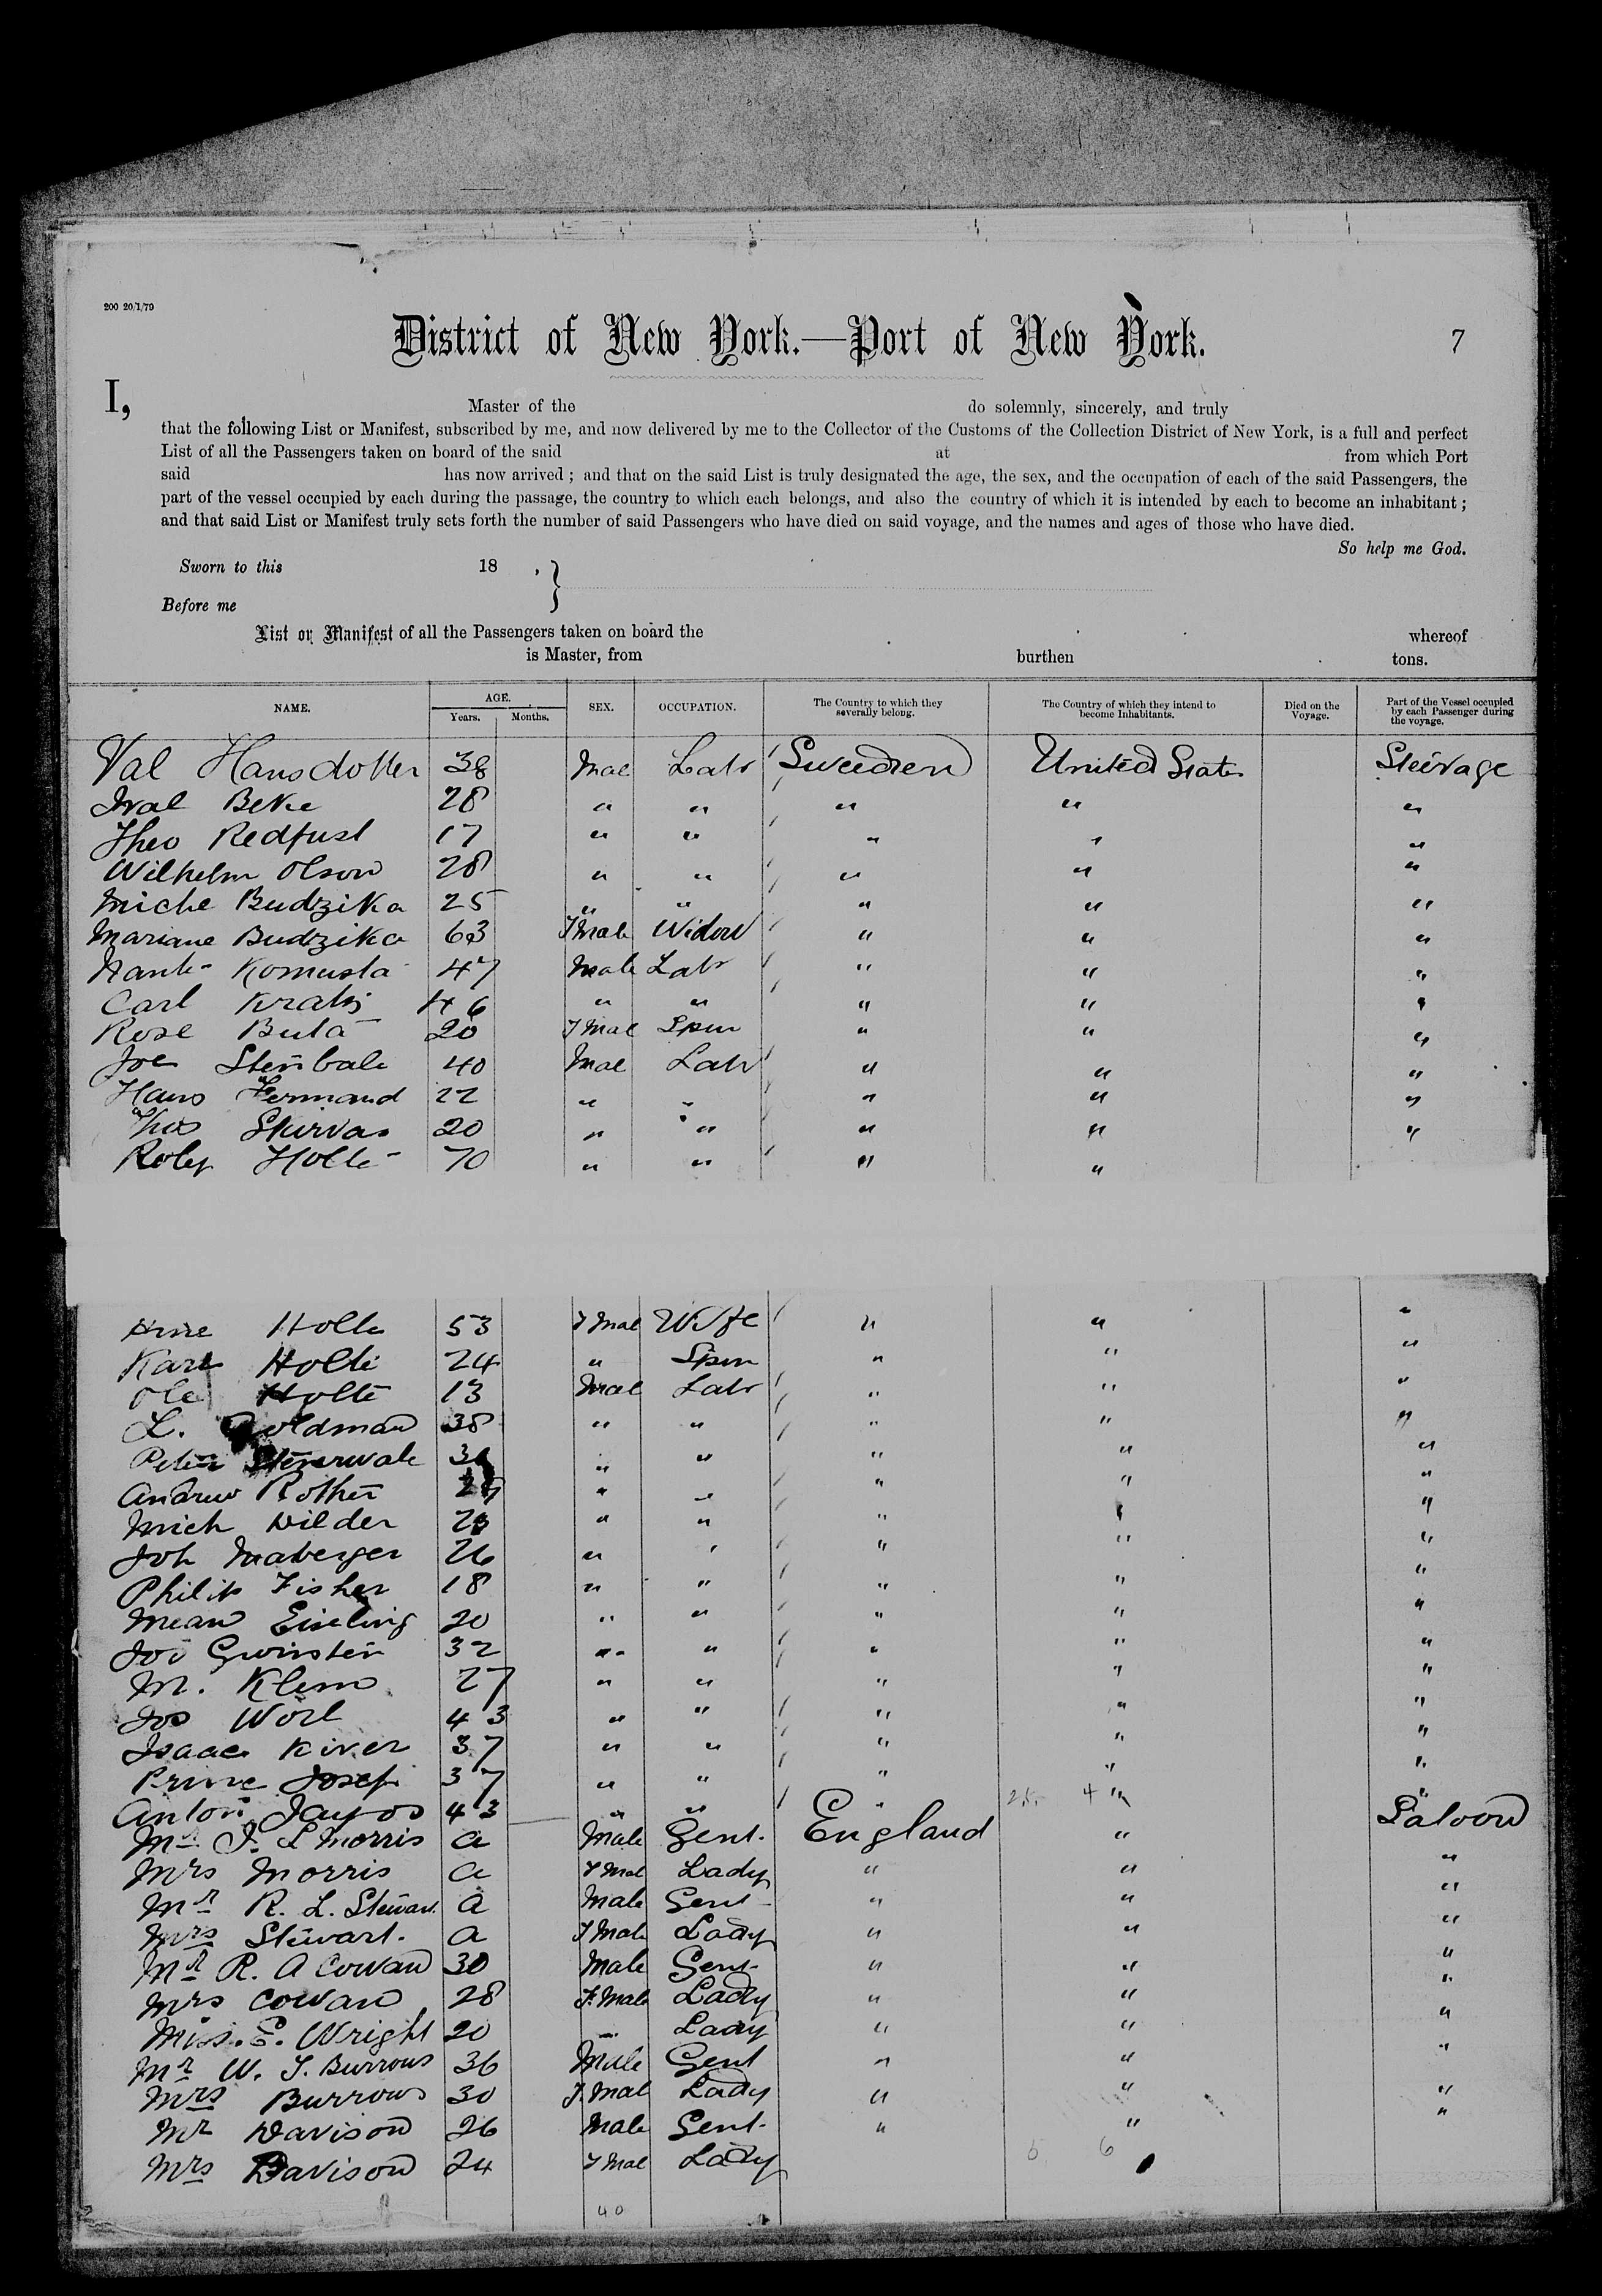 200 20/1/79
District of New York.—Port of New York. 7
I, Master of the do solemnly, sincerely, and truly
that the following List or Manifest, subscribed by me, and now delivered by me to the Collector of the Customs of the Collection District of New York, is a full and perfect
List of all the Passengers taken on board of the said at from which Port
said has now arrived ; and that on the said List is truly designated the age, the sex, and the occupation of each of the said Passengers, the
part of the vessel occupied by each during the passage, the country to which each belongs, and also the country of which it is intended by each to become an inhabitant ;
and that said List or Manifest truly sets forth the number of said Passengers who have died on said voyage, and the names and ages of those who have died.
So help me God.
Sworn to this 18 , }
Before me
List or Manifest of all the Passengers taken on board the whereof
is Master, from burthen tons.
NAME. AGE. Years. Months. SEX. OCCUPATION. The Country to which they severally belong. The Country of which they intend to become Inhabitants. Died on the Voyage. Part of the Vessel occupied by each Passenger during the voyage.
Val Hansdotter 38 Mal Labr Sweeden United States Steerage
Beke 28 " " " " "
Theo Redfust 17 " " " " "
Wilhelm Olson 28 " " " " "
Miche Budzika 25 " " " " "
Mariane Budzika 63 Fmale Widow " " "
Komusta 47 Male Labr " " "
Carl 46 " " " " "
Rose Buta 20 Fmal Spin " " "
Joe Stenbale 40 Mal Labr " " "
Hans 22 " " " " "
Thos Skirvas 20 " " " " "
Holte 70 " " " "
Holte 53 Fmal Wife " " "
Holte 24 " Spin " " "
Ole Holte 13 Mal Labr " " "
L. Goldman 38 " " " " "
Peter " " " " "
Andrew Rother " " " " "
Mich Wilder " " " " "
Joh Maberger 26 " " " " "
Philip Fisher 18 " " " " "
Eiseling 20 " " " " "
32 " " " " "
M. Klem 27 " " " " "
Jos Worl 43 " " " " "
Isaac Kiver 37 " " " " "
Prine Josef 37 " " " " "
Anton Jayos 43 " " " " "
Mr J. L Morris a Male Gent. England " Saloon
Mrs Morris a Fmal Lady " " "
Mr R. L. Stewart a Male Gent " " "
Mrs Stewart. a Fmale Lady " " "
Mr R. A Cowan 30 Male Gent " " "
Mrs Cowan 28 F.Male Lady " " "
Miss. E. Wright 20 " Lady " " "
Mr W. J. Burrows 36 Male Gent " " "
Mrs Burrows 30 F.Mal Lady " " "
Mr Davison 26 Male Gent. " " "
Mrs Davison 24 Fmal Lady 5 6
40